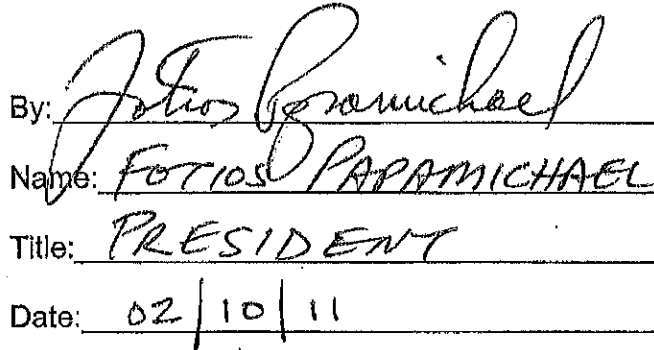 By: Fotios Papamichael
Name: FOTIOS PAPAMICHAEL
Title: PRESIDENT
Date: 02/10/11